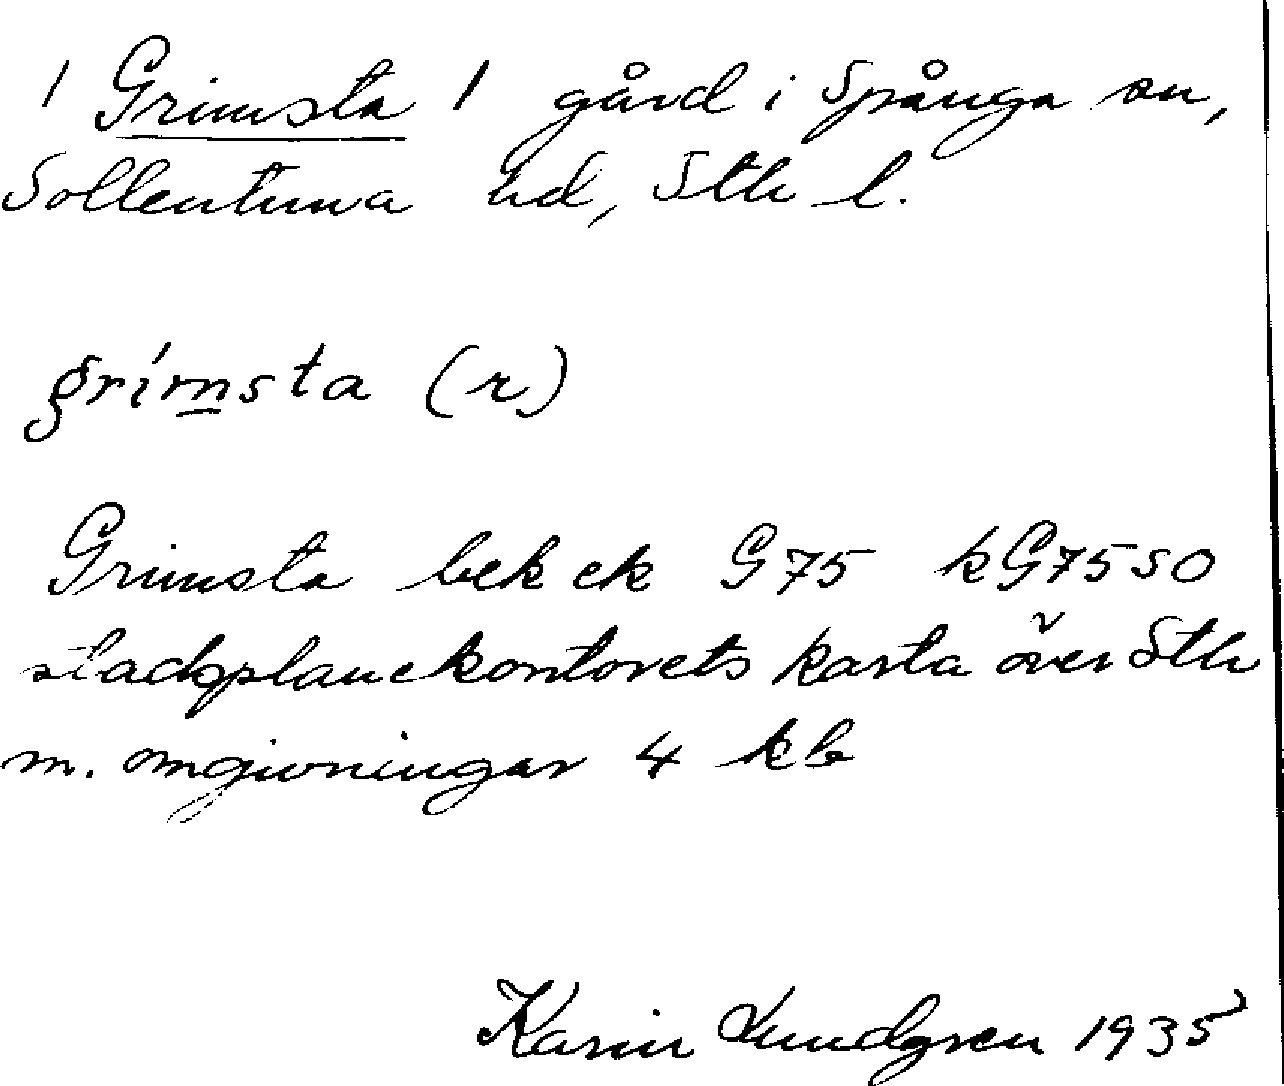 / Grimsta / gård i Spånga sn,
Sollentuna hd, Sth l.
grímsta (r)
Grimsta bek ek G 75 kG75SO
stadsplanekontorets karta över Sth
m. omgivningar 4 kb
Karin Lundgren 1935